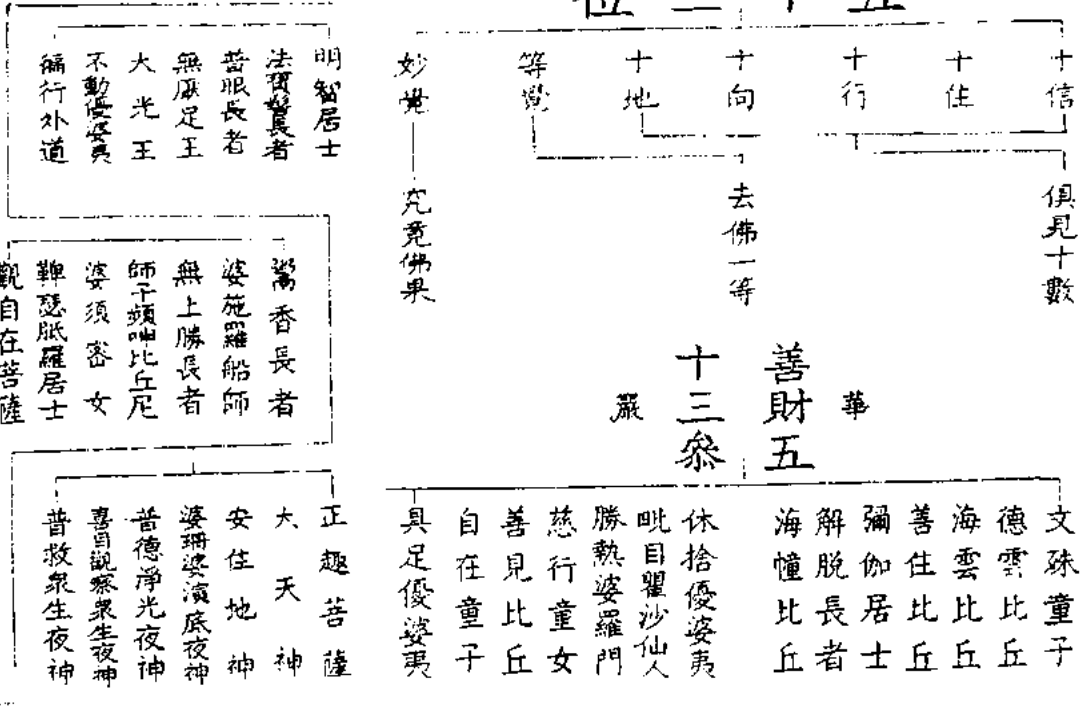 五十二位
十信
十住
十行
十向
十地
等覺
妙覺
俱見十數
去佛一等
究竟佛果
華嚴
善財五十三叅
文殊童子
德雲比丘
海雲比丘
善住比丘
彌伽居士
解脫長者
海幢比丘
休捨優婆夷
毗目瞿沙仙人
勝熱婆羅門
慈行童女
善見比丘
自在童子
具足優婆夷
明智居士
法寶髻長者
普眼長者
無厭足王
大光王
不動優婆夷
徧行外道
鬻香長者
婆施羅船師
無上勝長者
師子頻呻比丘尼
婆須密女
鞞瑟胝羅居士
觀自在菩薩
正趣菩薩
大天神
安住地神
婆珊婆演底夜神
普德淨光夜神
喜目觀察衆生夜神
普救衆生夜神